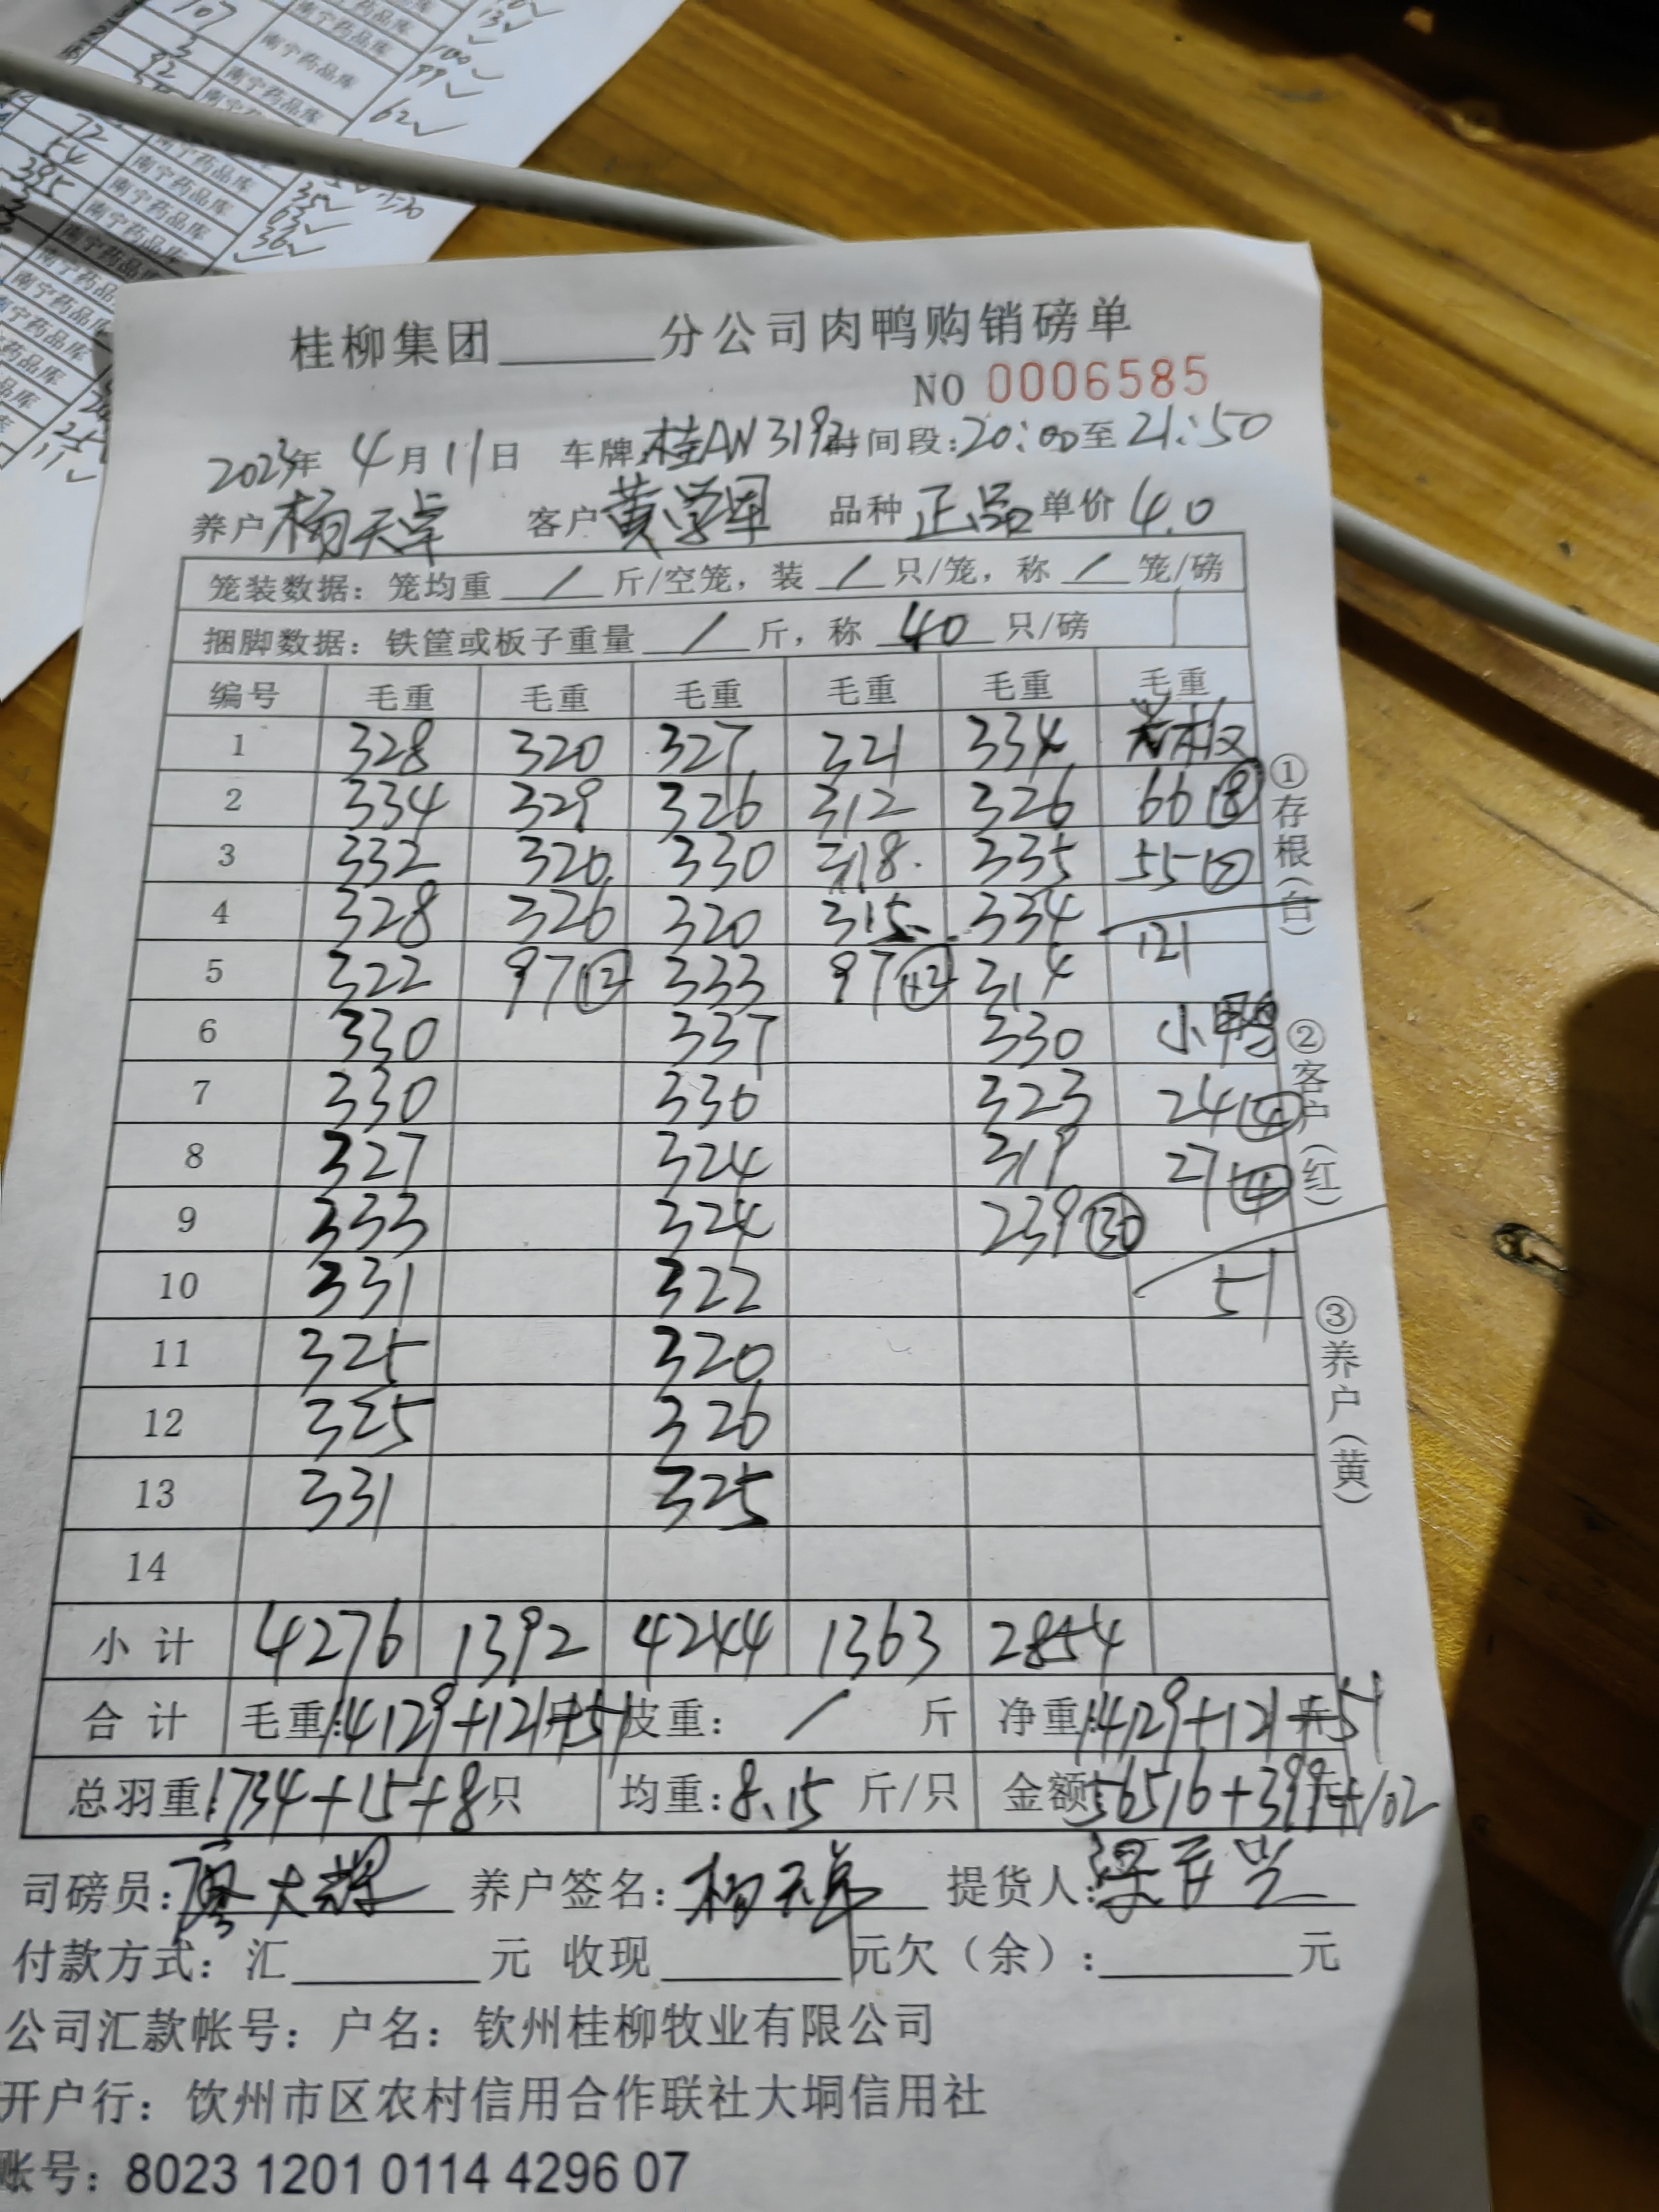 107
13√
100√
99√
62√
3
92
南宁药品库
南宁药品库
南宁药品库
72
南宁药品库
54
南宁药品库
35√
385
南宁药品库
63√
南宁药品库
36√
南宁药品库
南宁药品库
南宁药品库
11√
桂柳集团______分公司肉鸭购销磅单
NO 0006585
2023年 4月11日 车牌:桂AN3192 时间段:20:00至21:50
养户 杨天卓 客户 黄学军 品种 正品 单价 4.0
笼装数据：笼均重 / 斤/空笼，装 / 只/笼，称 / 笼/磅
捆脚数据：铁筐或板子重量 / 斤，称 40 只/磅
编号 毛重 毛重 毛重 毛重 毛重 毛重
1 328 320 327 321 334
2 334 329 326 312 326 66 ⑧
3 332 320 330 318 335 55 ⑦
4 328 326 320 315 334 121
5 322 97 ⑫ 333 97 ⑫ 314
6 330 337 330 小鸭
7 330 330 323 24 ④
8 327 324 319 27 ④
9 333 324 239 ㉚
10 331 322 51
11 325 320
12 325 326
13 331 325
14
小计 4276 1392 4244 1363 2854
合计 毛重:14129+121+51 皮重: / 斤 净重:14129+121+51
总羽重:1734+15+8只 均重:8.15 斤/只 金额:56516+399+102
司磅员:廖大辉 养户签名:杨天卓 提货人:
付款方式：汇______元 收现______元欠（余）:______元
公司汇款帐号：户名：钦州桂柳牧业有限公司
开户行：饮州市区农村信用合作联社大垌信用社
账号：8023 1201 0114 4296 07
①存根（白）
②客户（红）
③养户（黄）